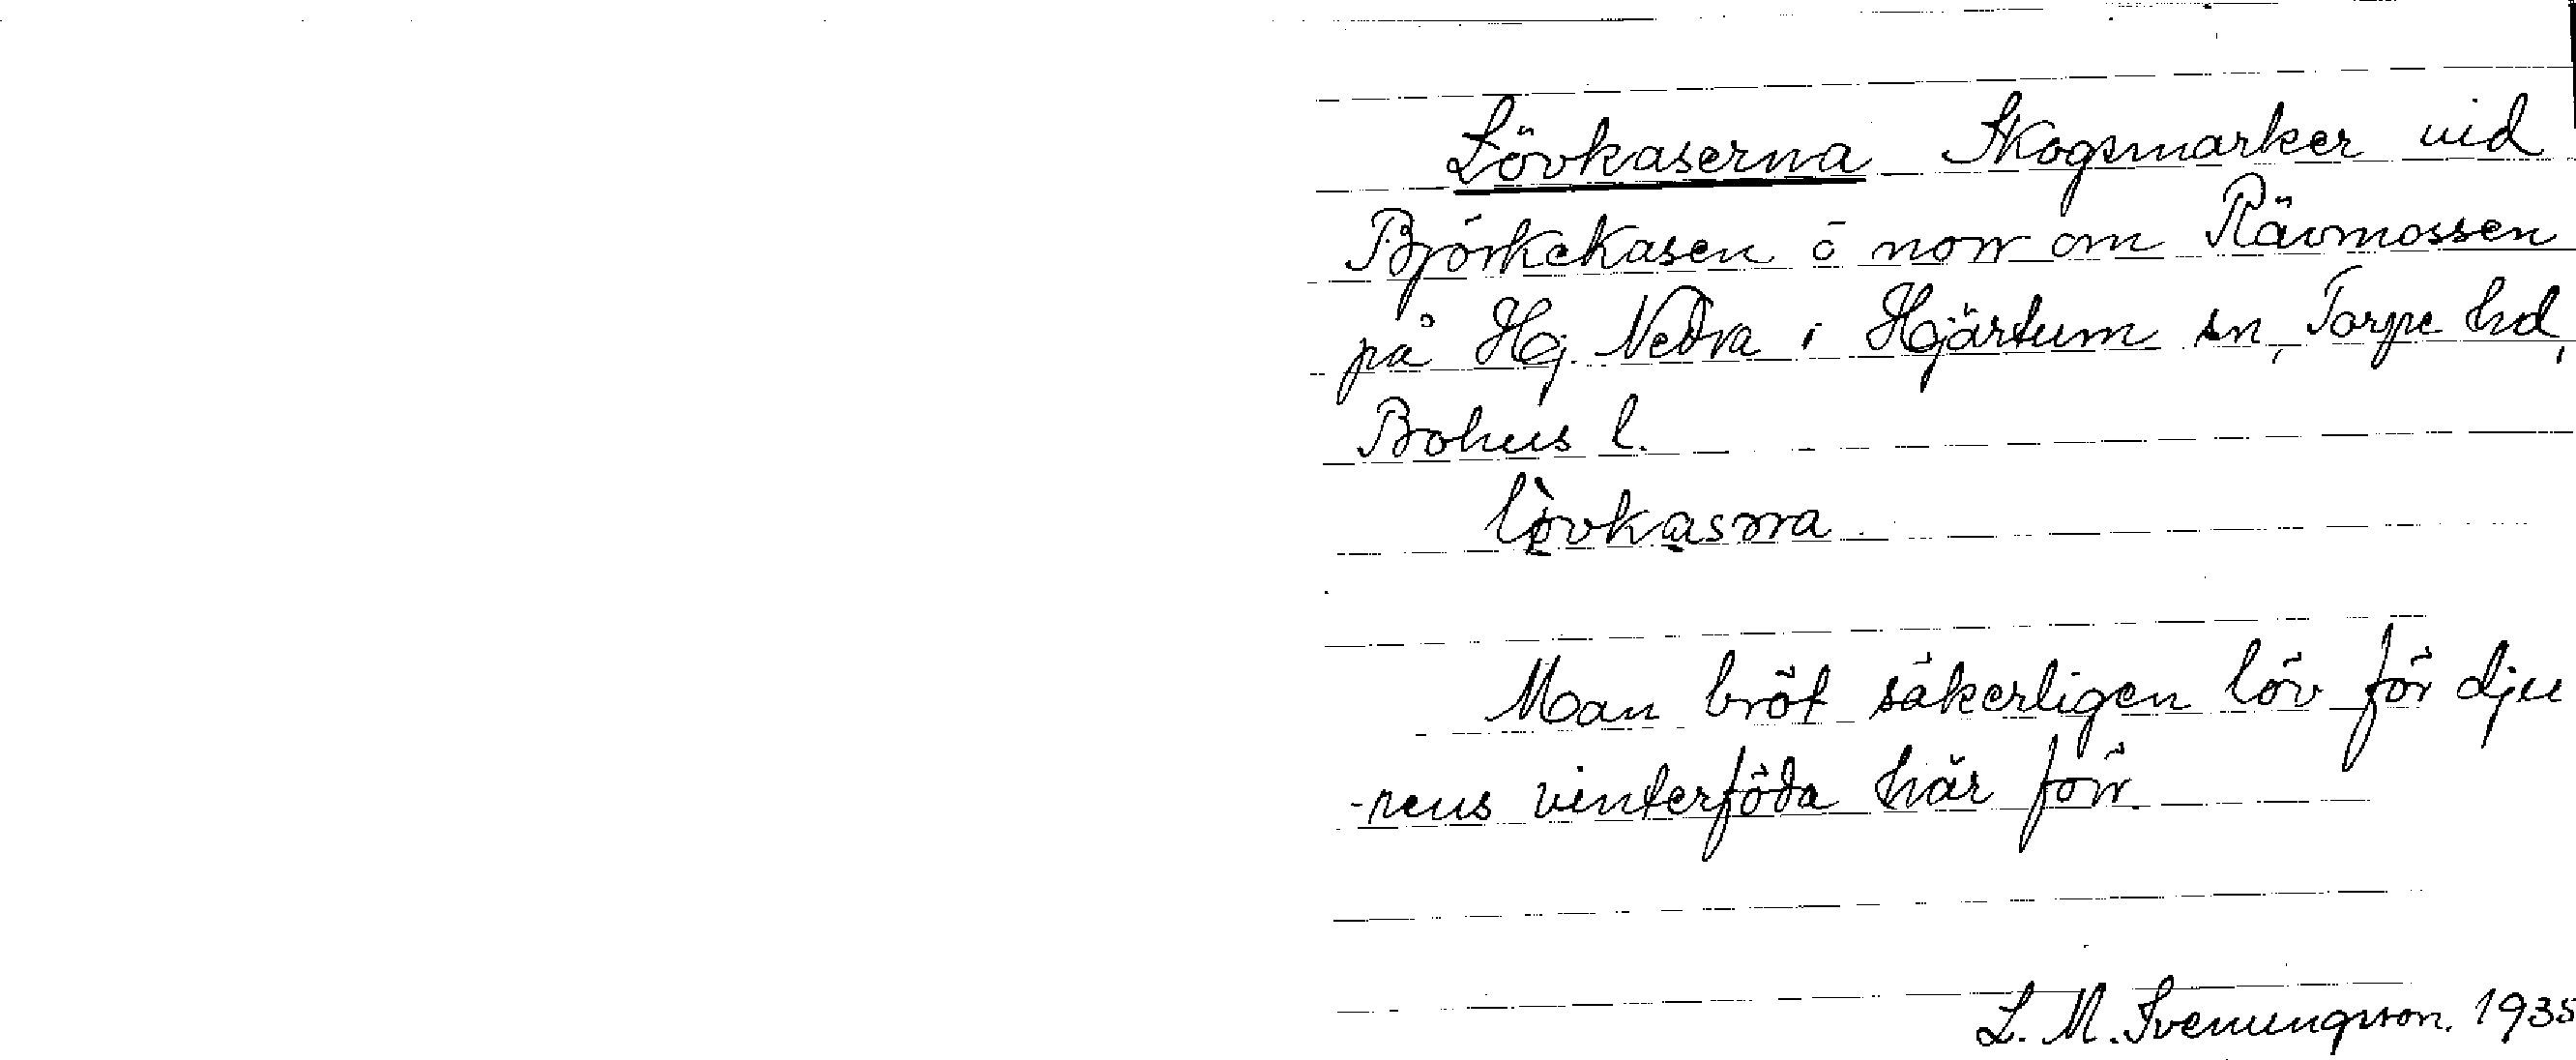 Lövkaserna Skogsmarker vid
Björkekasen ö norr om Rävmossen
på Hj. Nedra i Hjärtum sn, Torpe hd,
Bohus l.
lòvkasṇa
Man bröt säkerligen löv för dju
-rens vinterföda här förr.
L. M. Svenungsson. 1935